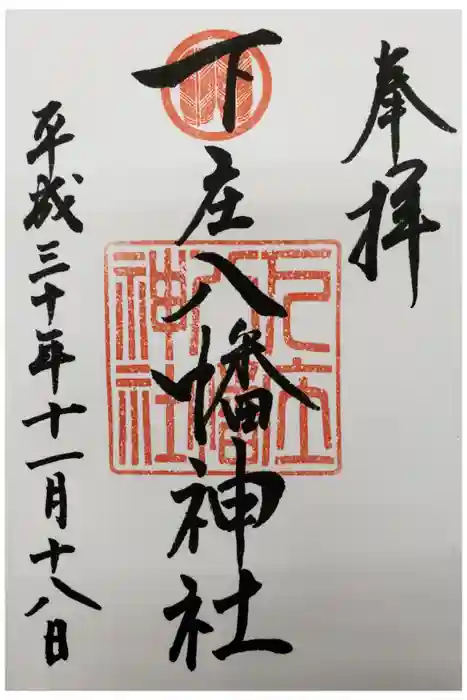 奉拝
下庄八幡神社
平成三十年十一月十八日
下庄
八幡
神社